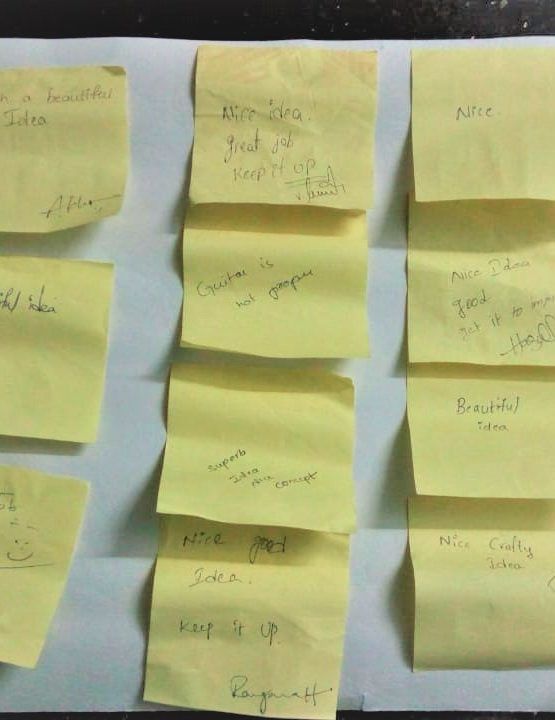 a beautiful
Idea
idea
Nice idea.
great job
Keep it up
Guitar is
not proper
Superb
Idea
Nice concept
Nice good
Idea.
Keep it up.
Nice.
Nice Idea
good
get it to
Beautiful
idea
Nice Crafty
Idea